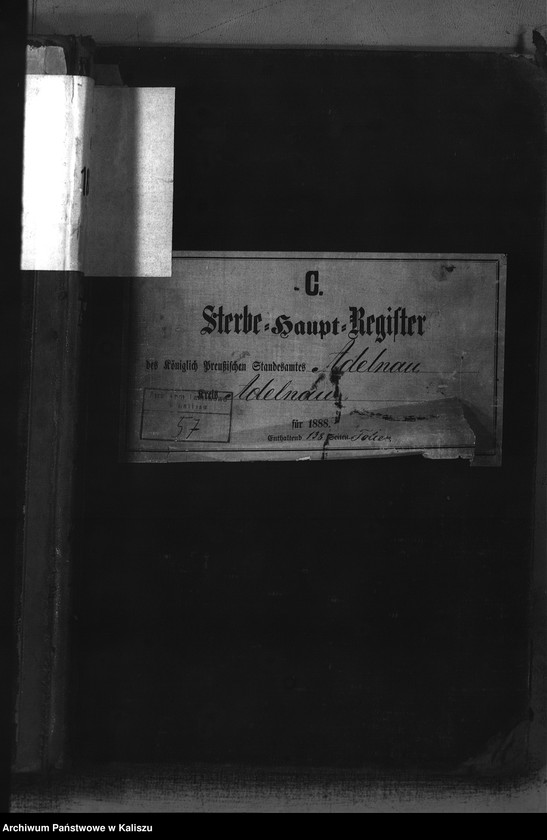 C.
Sterbe-Haupt-Register
des Königlich Preußischen Standesamtes Adelnau
Kreis Adelnau
57
für 1888.
Enthaltend 138
Archiwum Państwowe w Kaliszu